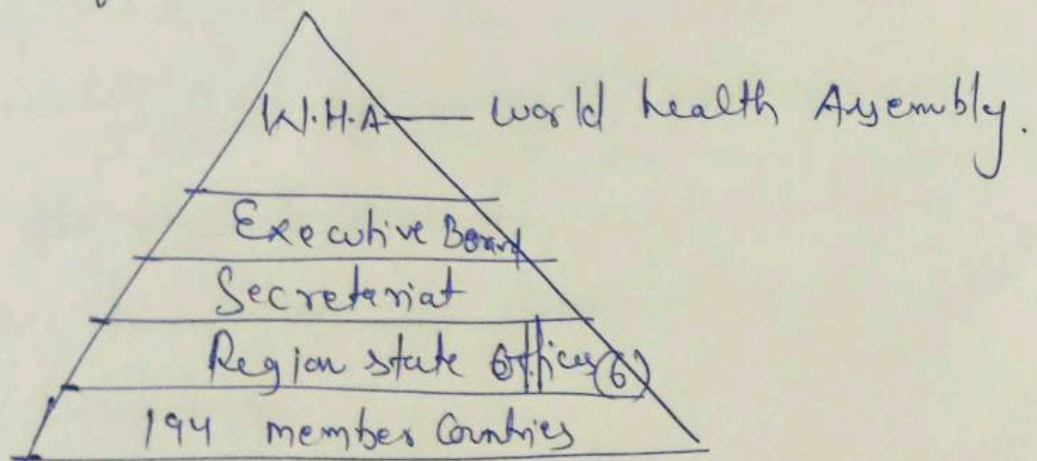 W.H.A — World health Assembly.
Executive Board
Secretariat
Region state Offices (6)
194 member Countries